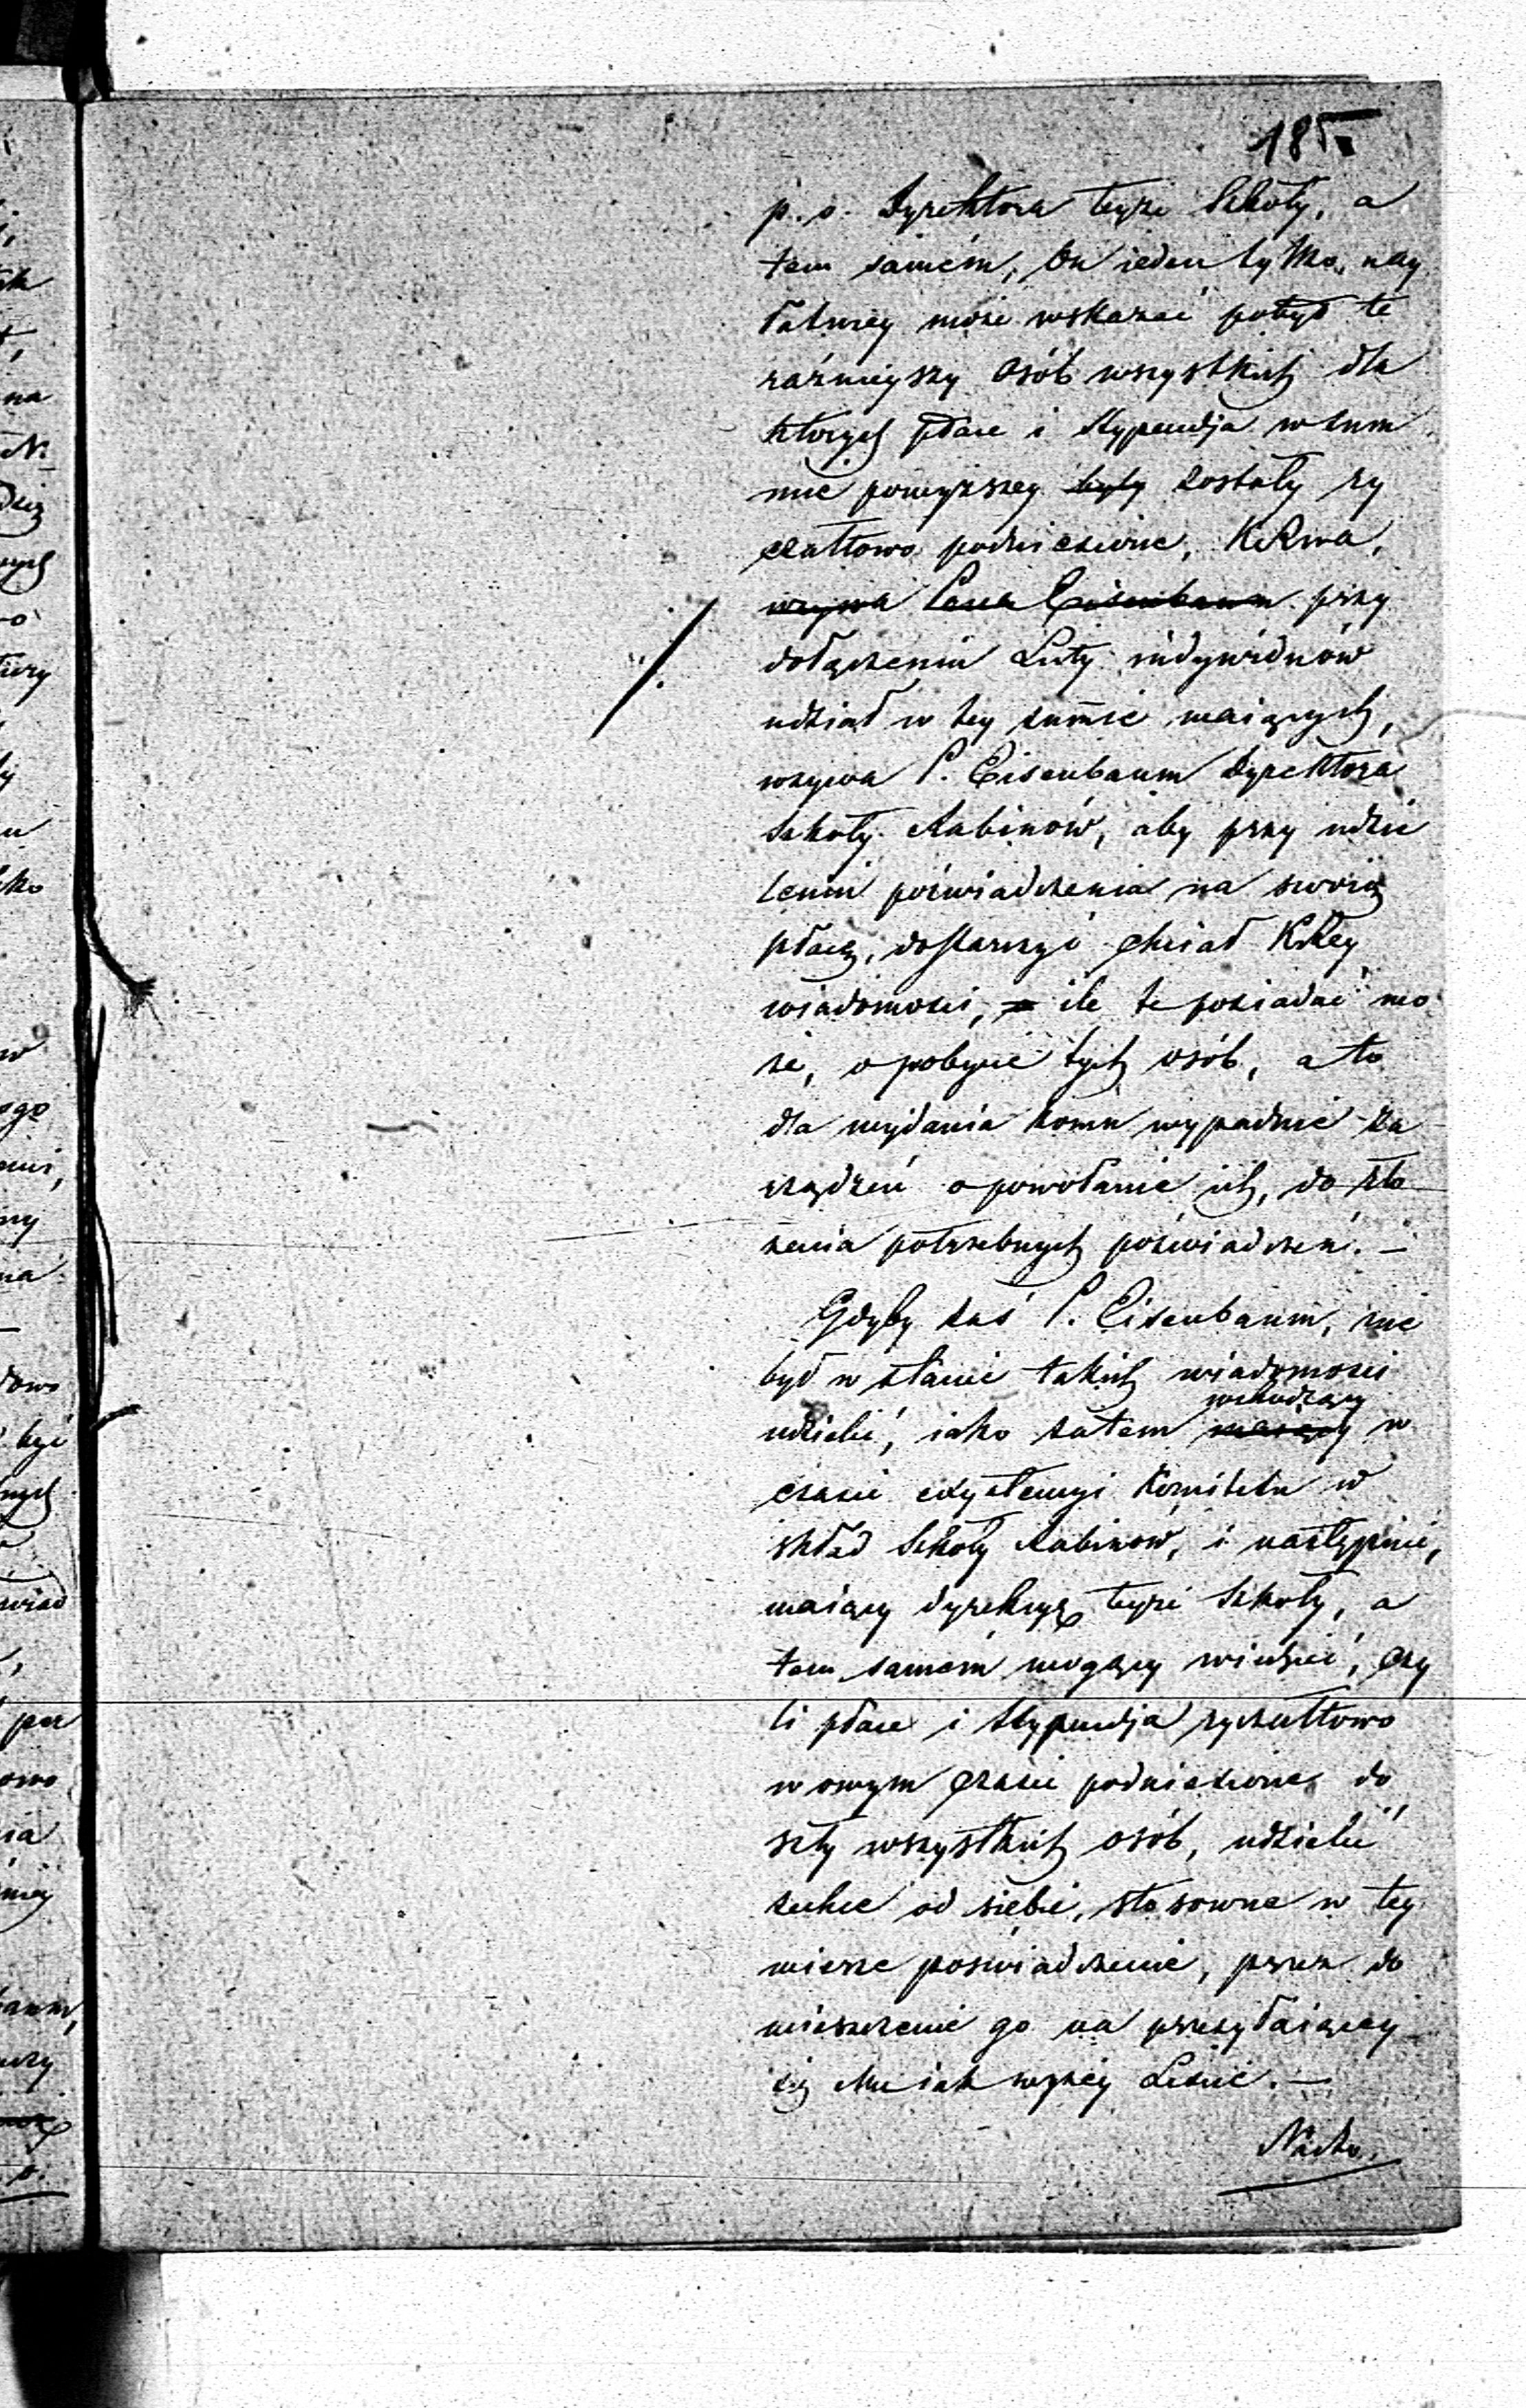 185
p. o. Dyrektora teyże Szkoły, a
tem samém, On ieden tylko, nay
łatwiey może wskazać pobyt te
raźnieyszy osób wszystkich dla
których płace i stypendja w sum
mie powyższey były zostały ry
czałtowo podniesione, KRwa,
wzywa Pana Eisenbaum przy
dołączeniu Listy indywiduów
udział w tey summie maiących,
wzywa P. Eisenbaum Dyrektora
Szkoły Rabinów, aby przy udzie
leniu poświadczenia na swoią
płacę, dostarczyć chciał KRey
wiadomości, ile te posiadać mo
że, o pobycie tych osób, a to
dla wydania komu wypadnie za
rządzeń o powołanie ich, do zło
żenia potrzebnych poświadczeń. —
Gdyby zaś P. Eisenbaum, nie
był w stanie takich wiadomości
wchodzący
udzielić, iako zatem maiący w
czasie exystencyi Komitetu w
skład Szkoły Rabinów, i następnie,
maiący dyrekcyę teyże Szkoły, a
tem samém mogący wiedzieć, czy
li płace i stypendja ryczałtowo
w owym czasie podniesione do
szły wszystkich osób, udzielić
zechce od siebie, stosowne w tey
mierze poświadczenie, przez do
mieszczenie go na przesyłaiącey
się Mu iak wyżey Liście. —